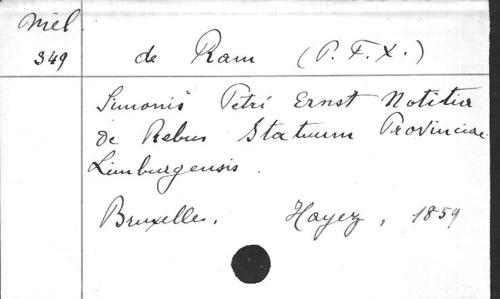 Miel
349
de Ram (P. F. X.)
Simonis Petri Ernst Notitia
de Rebus Statuum Provinciae
Limburgensis.
Bruxelles. Hayez, 1859